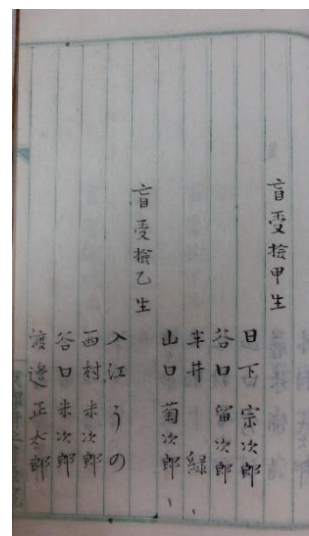 盲受検甲生
日下宗次郎
谷口留次郎
半井緑
山口菊次郎
盲受検乙生
入江うの
西村米次郎
谷口米次郎
渡邊正太郎